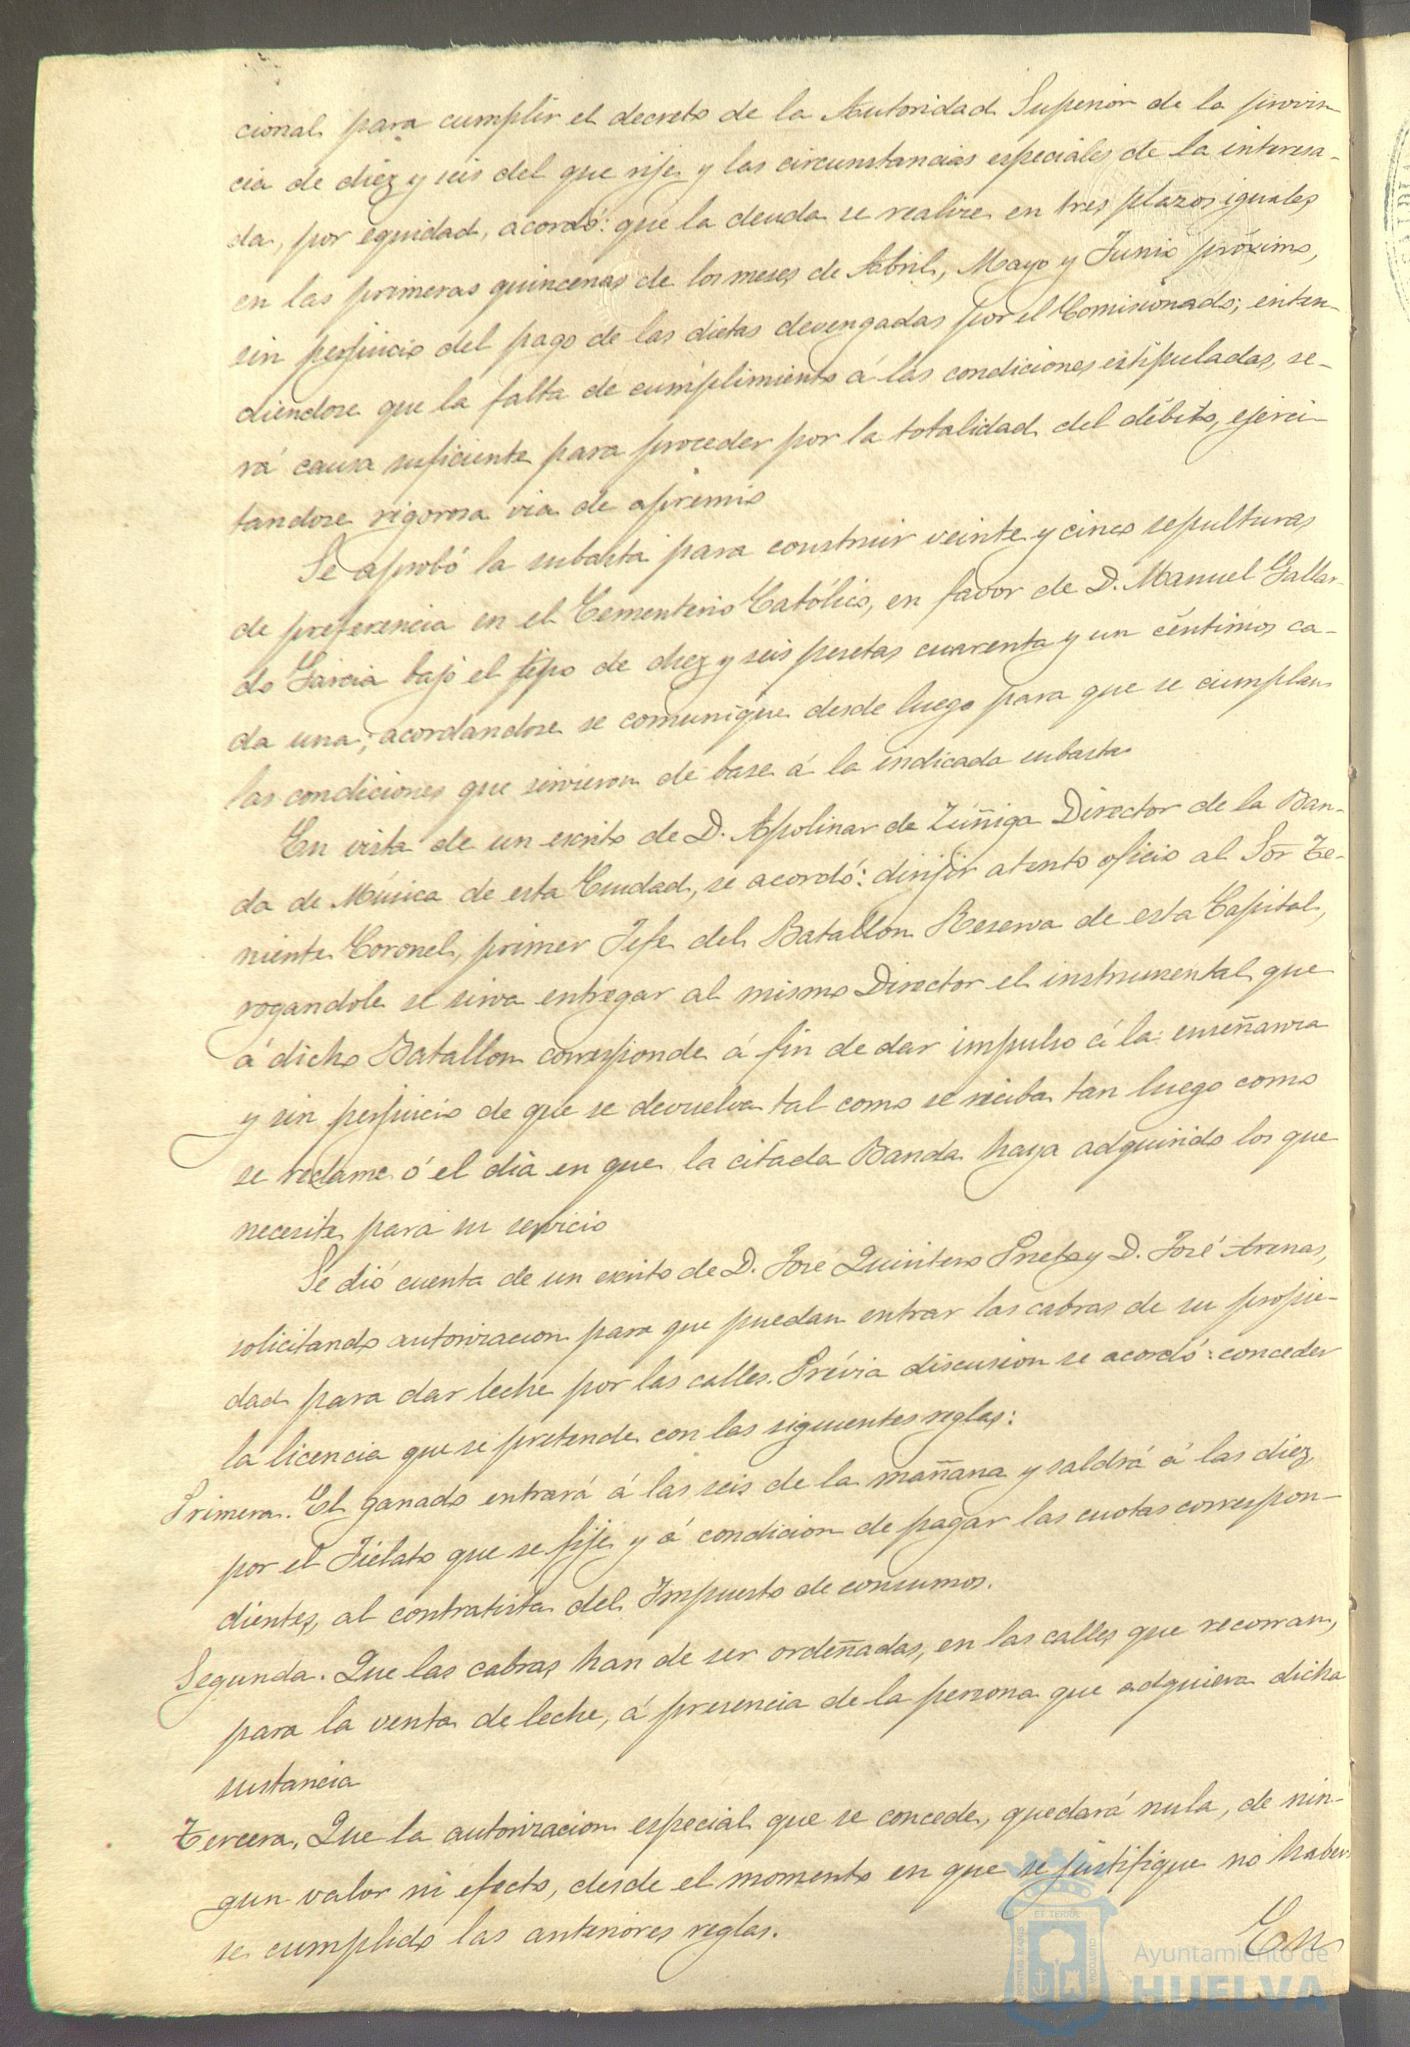 cional para cumplir el decreto de la Autoridad Superior de la provin-
cia de diez y seis del que rije y las circunstancias especiales de la interesa-
da, por equidad, acordó: que la deuda se realize en tres plazos iguales
en las primeras quincenas de los meses de Abril, Mayo y Junio próximo,
sin perjuicio del pago de las dietas devengadas por el Comisionado; enten-
diendose que la falta de cumplimiento á las condiciones estipuladas, se-
rá causa suficiente para proceder por la totalidad del débito, ejerci-
tandose rigorosa via de apremio
Se aprobó la subasta para construir veinte y cinco sepulturas
de preferencia en el Cementerio Católico, en favor de D. Manuel Gallar-
do Garcia bajo el tipo de diez y seis pesetas cuarenta y un céntimos ca-
da una; acordandose se comunique desde luego para que se cumplan
las condiciones que sirvieron de base á la indicada subasta
En vista de un escrito de D. Apolinar de Zúñiga Director de la Ban-
da de Música de esta Ciudad, se acordó: dirijir atento oficio al Sor Te-
niente Coronel, primer Jefe del Batallon Reserva de esta Capital,
rogandole se sirva entregar al mismo Director el instrumental que
á dicho Batallon corresponde á fin de dar impulso á la enseñanza
y sin perjuicio de que se devuelva tal como se reciba tan luego como
se reclame ó el dia en que la citada Banda haya adquirido los que
necesite para su servicio
Se dió cuenta de un escrito de D. José Quintero Prieto y D. José Arenas,
solicitando autorizacion para que puedan entrar las cabras de su propie-
dad para dar leche por las calles. Prévia discusion se acordó: conceder
la licencia que se pretende con las siguientes reglas:
Primera. El ganado entrará á las seis de la mañana y saldrá á las diez
por el Fielato que se fije y á condicion de pagar las cuotas correspon-
dientes, al contratista del Impuesto de consumos.
Segunda. Que las cabras han de ser ordeñadas, en las calles que recorran,
para la venta de leche, á presencia de la persona que adquiera dicha
sustancia
Tercera. Que la autorizacion especial que se concede, quedará nula, de nin-
gun valor ni efecto, desde el momento en que se justifique no haber
se cumplido las anteriores reglas.
En
Ayuntamiento de
HUELVA